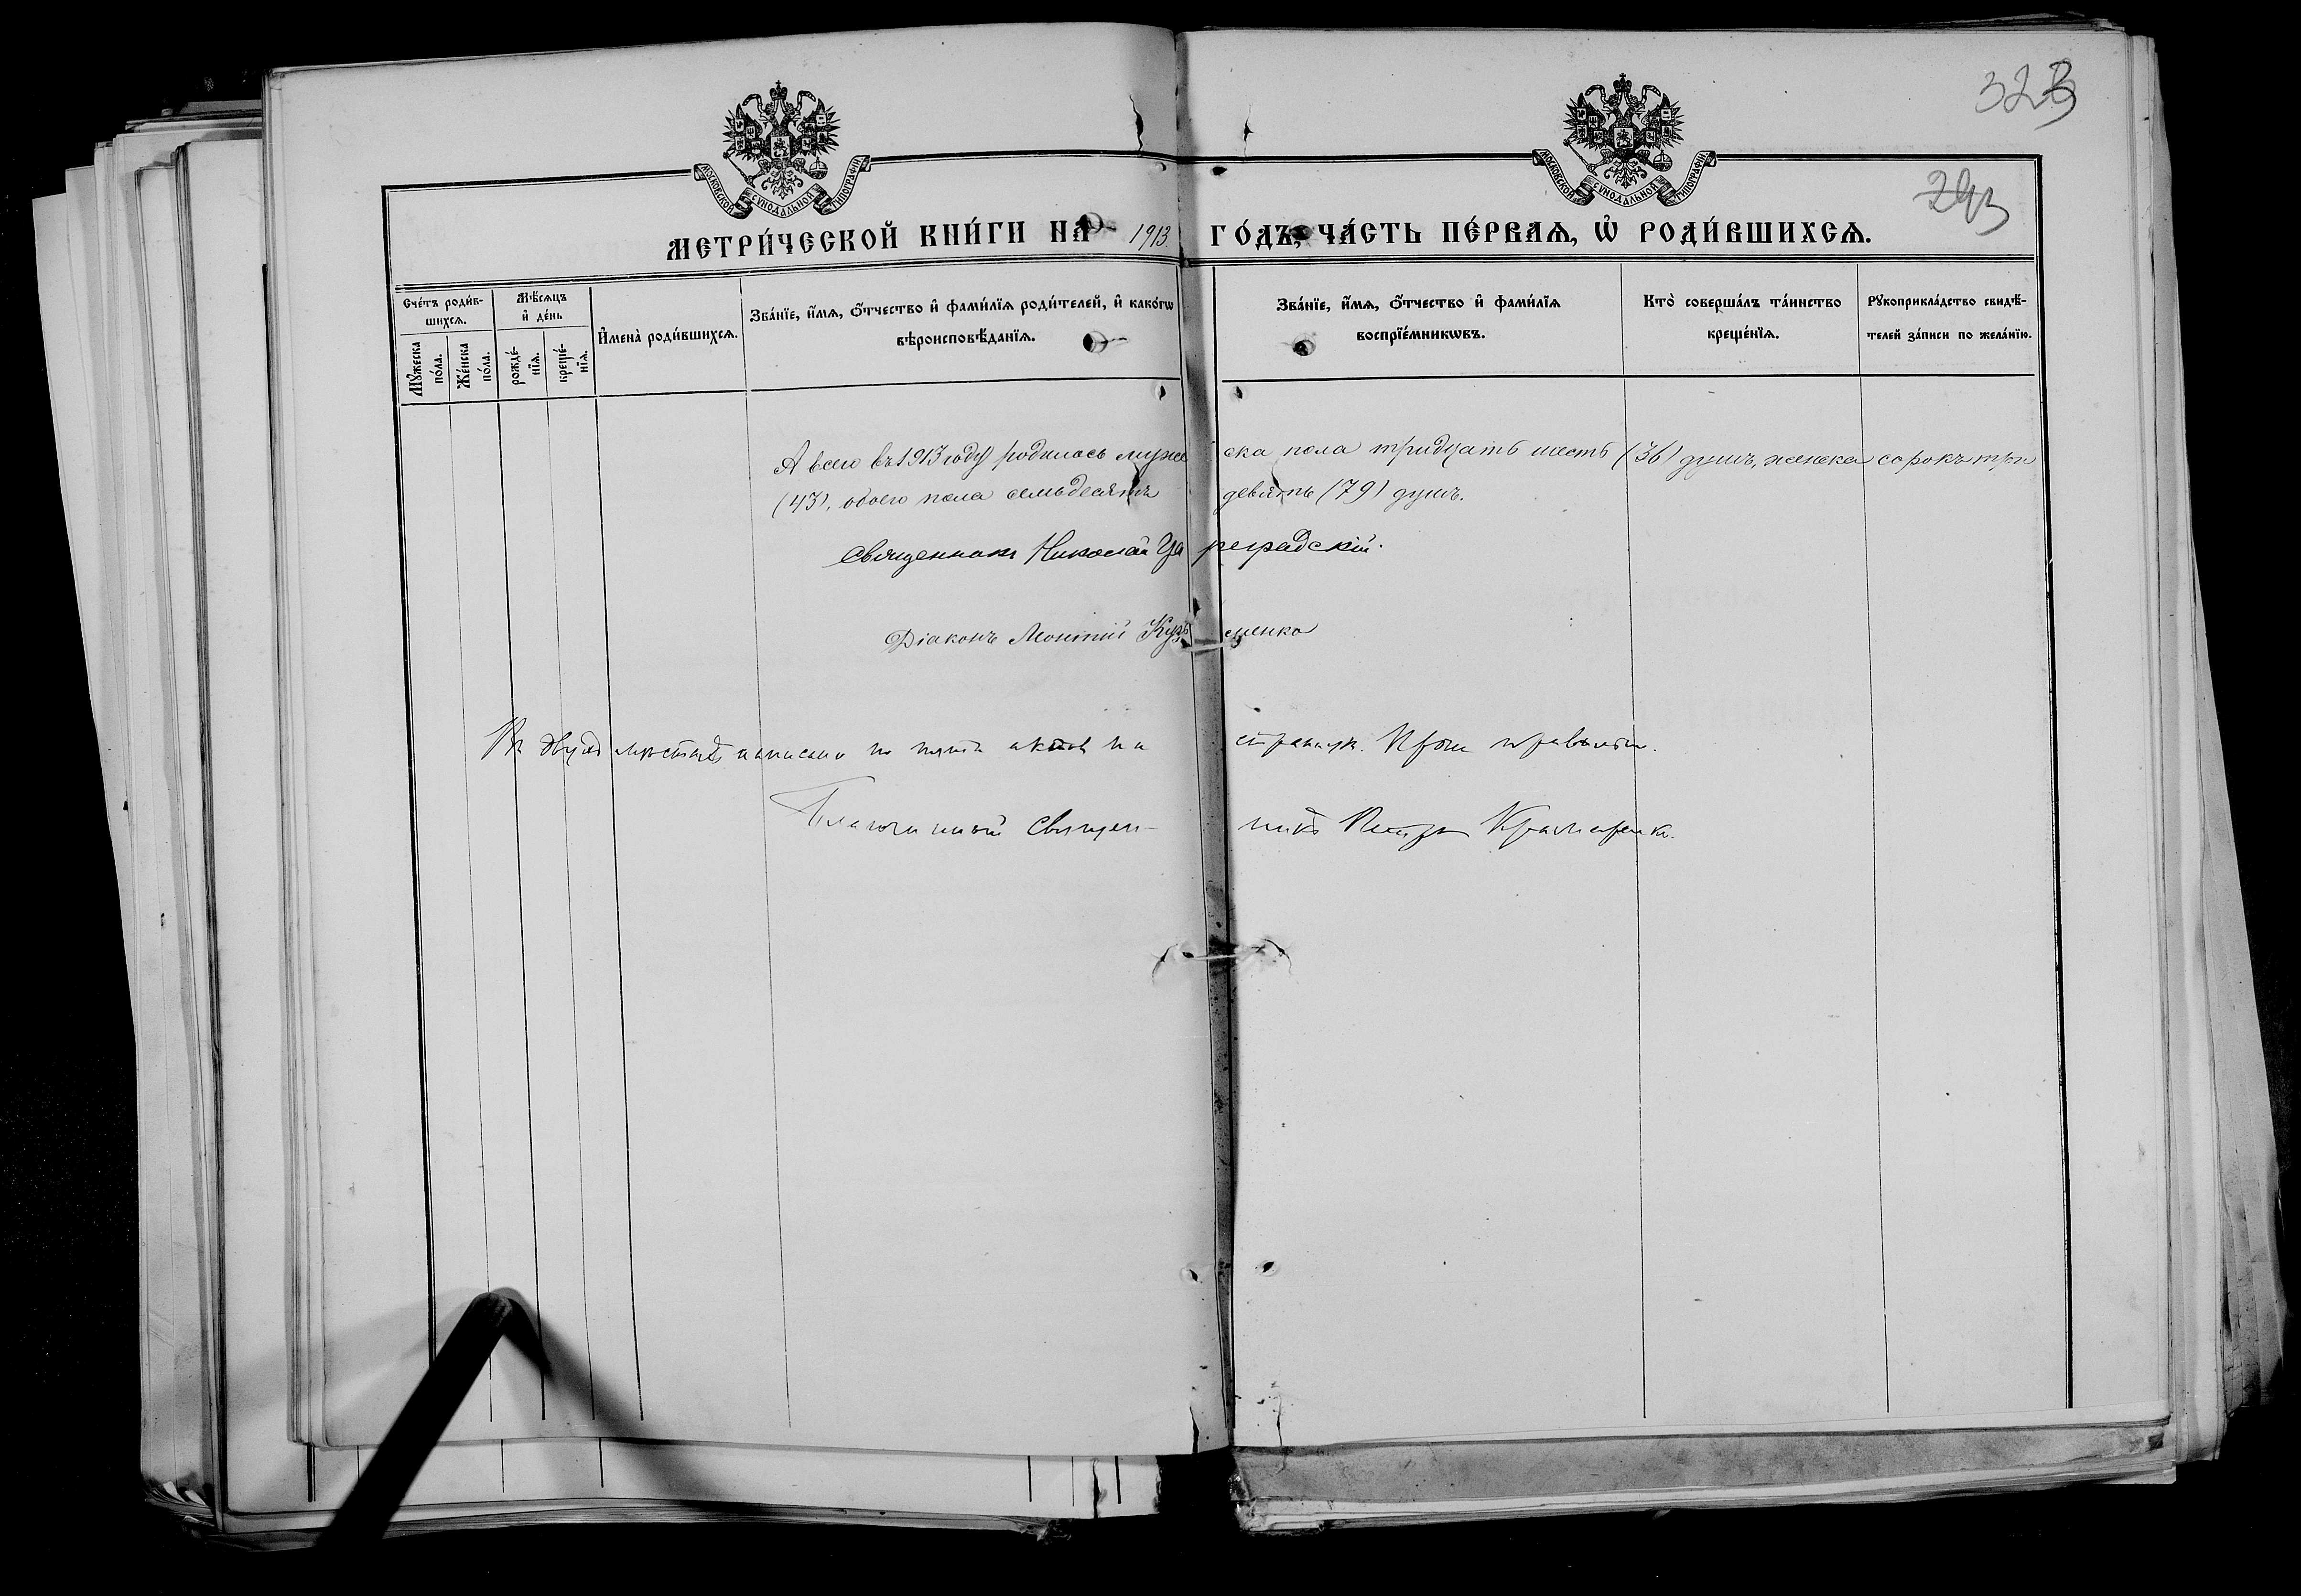 323
293
МОСКОВСКОЙ СѴНОДАЛЬНОЙ ТИПОГРАФІИ
МОСКОВСКОЙ СѴНОДАЛЬНОЙ ТИПОГРАФІИ
МЕТРИ́ЧЕСКОЙ КНИ́ГИ НА 1913 ГО́ДЪ, ЧА́СТЬ ПЕ́РВАѦ, Ѡ҆ РОДИ́ВШИХСѦ.
Сче́тъ роди́в-
шихсѧ.
Мꙋ́жеска по́ла.
Же́нска по́ла.
Мѣ́сѧцъ
и҆ де́нь
рожде́-
нїѧ.
креще́-
нїѧ.
И҆мена̀ роди́вшихсѧ.
Зва́нїе, и҆́мѧ, ѻ҆́тчество и҆ фами́лїѧ роди́телей, и҆ како́гѡ
вѣроисповѣ́данїѧ.
Зва́нїе, и҆́мѧ, ѻ҆́тчество и҆ фами́лїѧ
воспрїе́мникѡвъ.
Кто̀ соверша́лъ та́инство
креще́нїѧ.
Рꙋкоприкла́дство свидѣ́-
телей за́писи по жела́нїю.
А всего въ 1913 году родилось мужеска пола тридцать шесть (36) душъ, женска сорокъ три
(43), обоего пола семьдесятъ девять (79) душъ.
Священникъ Николай Цареградскій.
Діаконъ Кузьменко
Въ двухъ мѣстахъ написано по пяти актовъ на страницѣ.
Благочинный Священникъ Петръ Крамаренко.